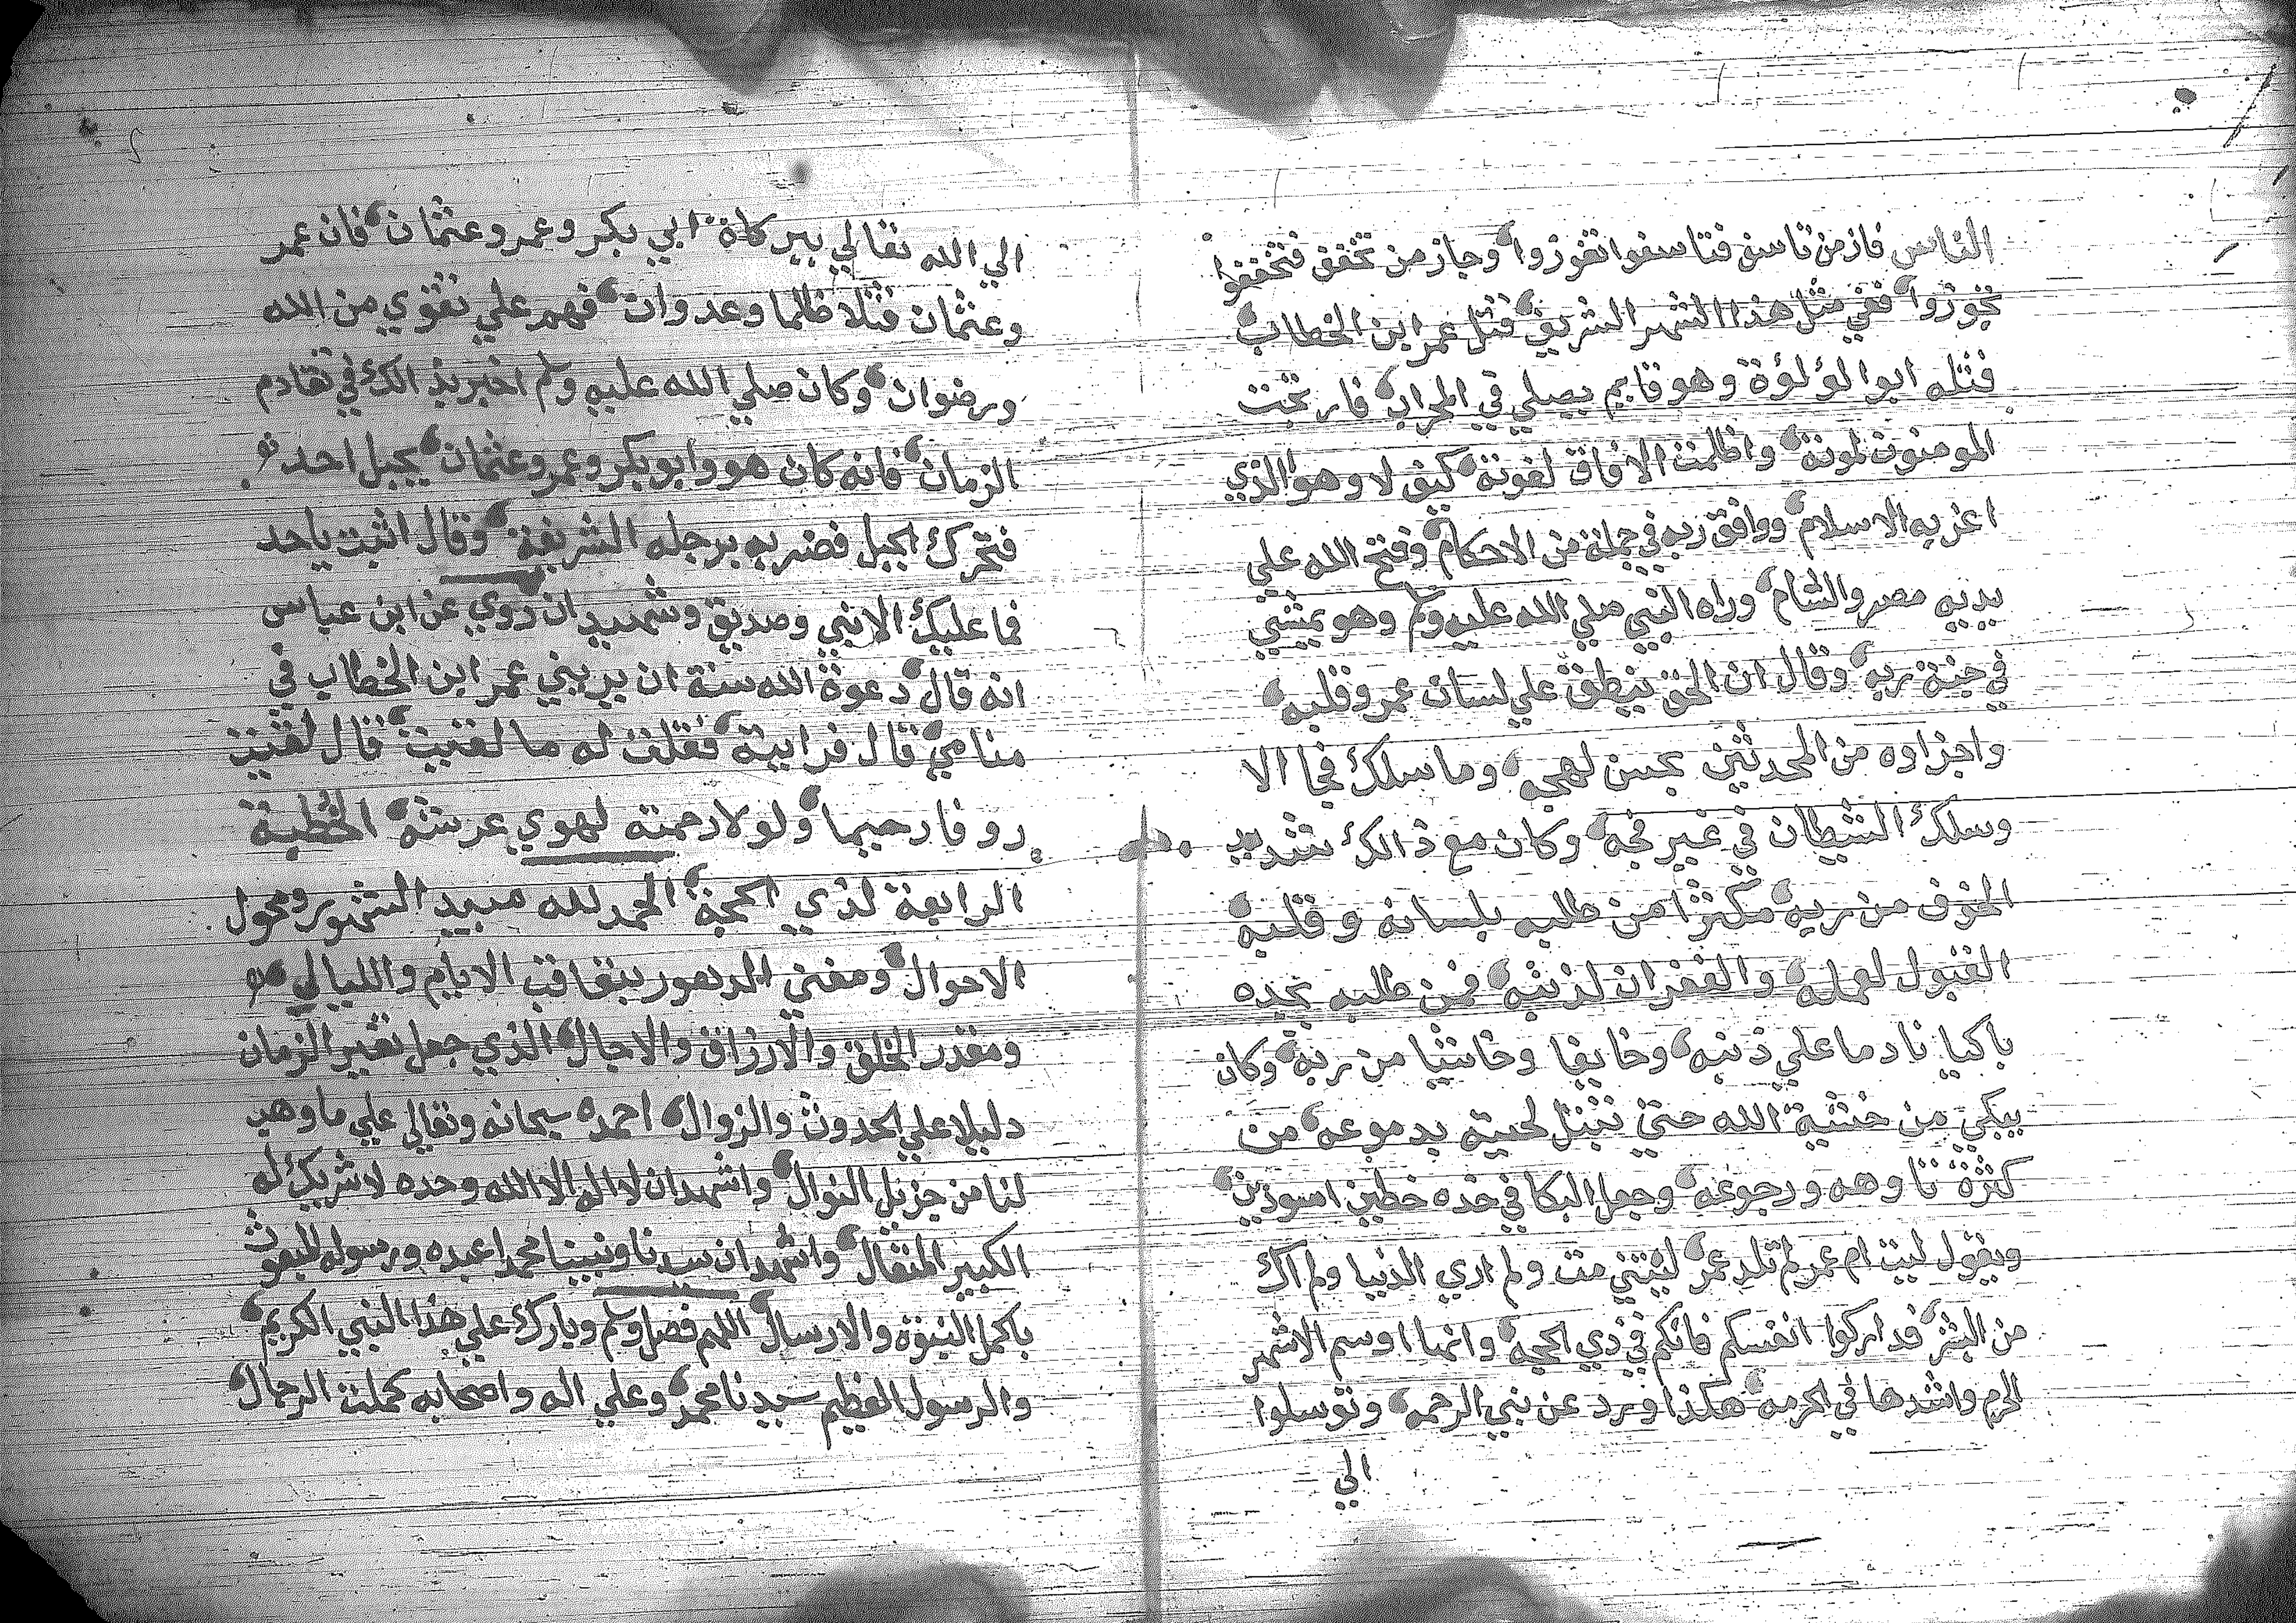 الناس فاز من تاسف فتاسفوا تفوزوا وجاز من تخفف فتخففوا
تجوزوا ففي مثل هذا الشهر الشريف قتل عمر ابن الخطاب
قتله ابوا لؤلؤة وهو قايم يصلي في المحراب فارتجت
المومنون لموته واظلمت الافاق لفوته كيف لا وهو الذي
اعز به الاسلام ووافق ربه في جملة من الاحكام وفتح الله علي
يديه مصر والشام وراه النبي صلي الله عليه ولم وهو يمشي
في جنة ربه وقال ان الحق ينطق علي لسان عمر وقلبه
واجزاوه من المحدثين بحسن لهجه وما سلك فجا الا
وسلك الشيطان في غير فجه وكان مع ذالك شديد
الخوف من ربه مكثرا من طلبه بلسانه وقلبه
القبول لعمله والغفران لذنبه فمن طلبه يجده
باكيا نادما علي ذنبه وخايفا وخاشيا من ربه وكان
يبكي من خشية الله حتي تبتل لحيته بدموعه من
كثرة تاوهه ورجوعه وجعل البكا في خده خطين اسودين
ويقول ليت ام عمر لم تلد عمر ليتني مت ولم اري الدنيا ولم اك
من البشر فداركوا انفسكم فانكم في ذي الحجه وانها اوسم الاشهر
الحرم واشدها في الحرمه هكذا ورد عن نبي الرحمه وتوسلوا
الي
الي الله تعالي ببركاة ابي بكر وعمر وعثمان فان عمر
وعثمان قتلا ظلما وعدوان فهم علي تقوي من الله
ورضوان وكان صلي الله عليه ولم اخبر بذالك في تقادم
الزمان فانه كان هو وابو بكر وعمر وعثمان بجبل احد
فتحرك الجبل فضربه برجله الشريفة وقال اثبت ياحد
فما عليك الا نبي وصديق وشهيدان روي عن ابن عباس
انه قال دعوة الله سنة ان يريني عمر ابن الخطاب في
منامي قال فرايته فقلت له ما لقيت قال لقيت
روفا رحيما ولولا رحمته لهوي عرشه الخطبة
الرابعة لذي الحجة الحمد لله مبيد الشهور ومحول
الاحوال ومفني الدهور بتعاقب الايام والليالي
ومقدر الخلق والارزاق والاجال الذي جعل تغير الزمان
دليلا علي الحدوث والزوال احمده سبحانه وتعالي علي ما وهب
لنا من جزيل النوال واشهد ان لا اله الا الله وحده لا شريك له
الكبير المتعال واشهد ان سيدنا ونبينا محمدا عبده ورسوله المبعوث
باكمل النبوة والارسال اللهم فصل ولم وبارك علي هذا النبي الكريم
والرسول العظيم سيدنا محمد وعلي اله واصحابه كملت الرجال